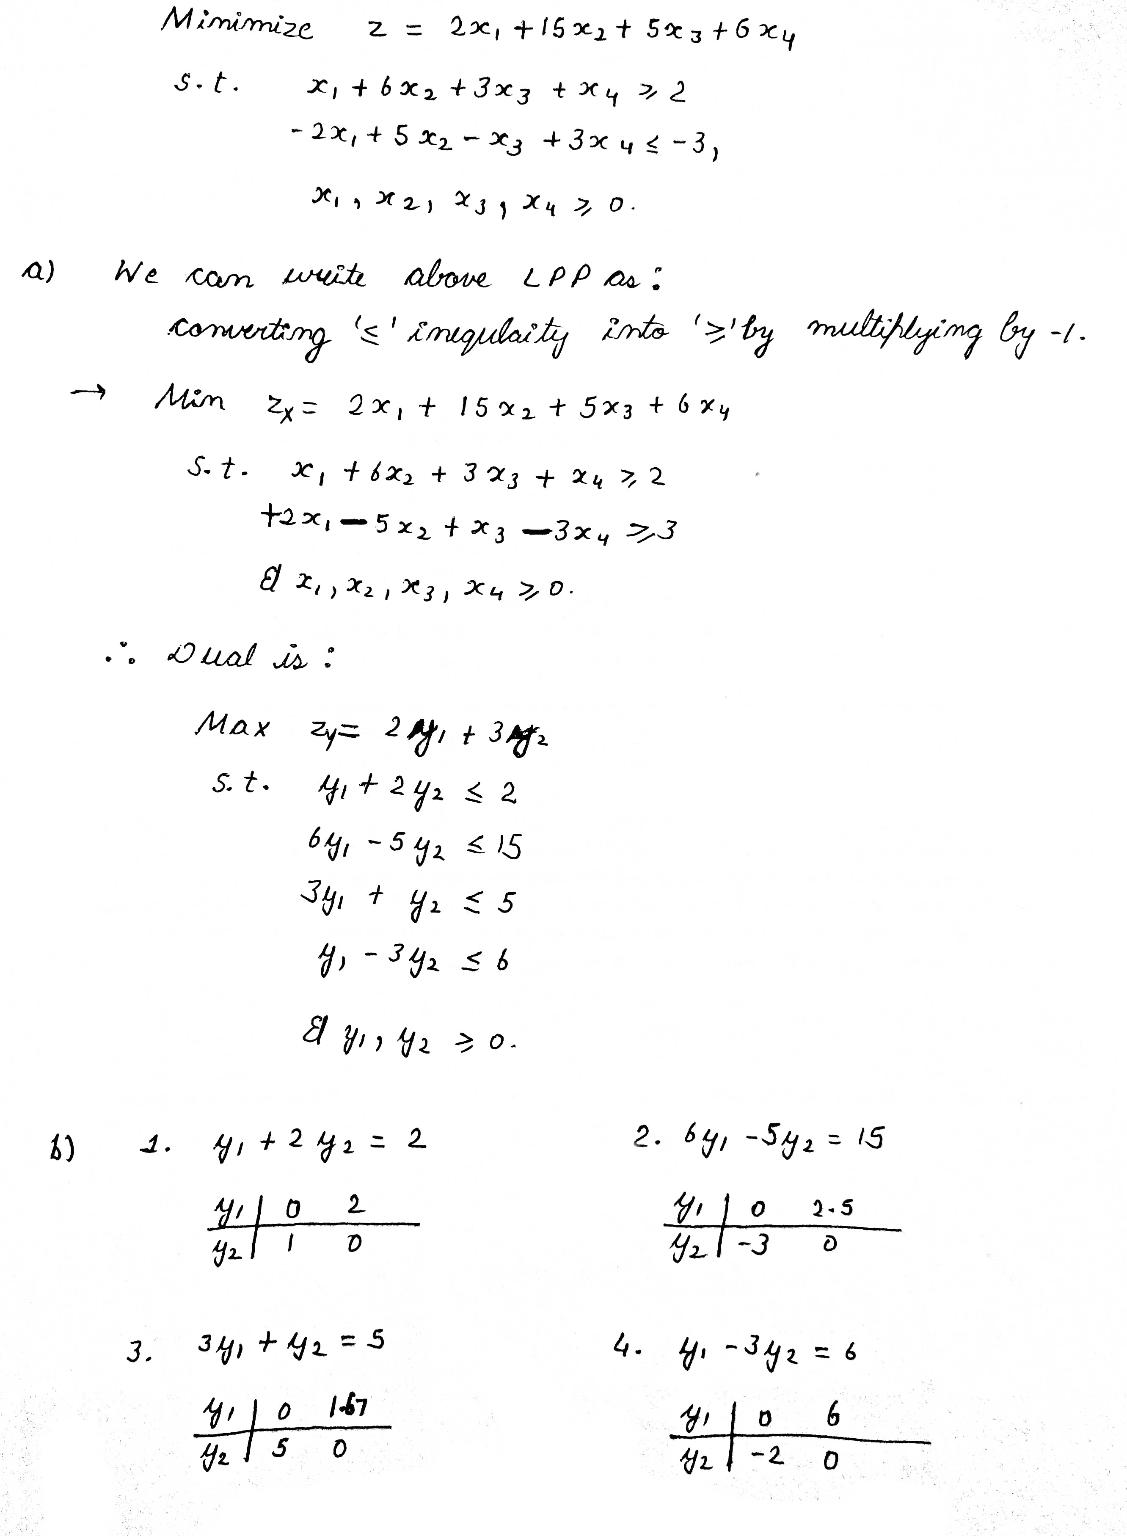 Minimize z = 2x₁ + 15x₂ + 5x₃ + 6x₄
s.t. x₁ + 6x₂ + 3x₃ + x₄ ≥ 2
-2x₁ + 5x₂ - x₃ + 3x₄ ≤ -3,
x₁, x₂, x₃, x₄ ≥ 0.
a) We can write above LPP as :
converting '≤' inequlaity into '≥' by multiplying by -1.
→ Min zₓ = 2x₁ + 15x₂ + 5x₃ + 6x₄
s.t. x₁ + 6x₂ + 3x₃ + x₄ ≥ 2
+2x₁ - 5x₂ + x₃ - 3x₄ ≥ 3
& x₁, x₂, x₃, x₄ ≥ 0.
∴ Dual is :
Max z_y = 2y₁ + 3y₂
s.t. y₁ + 2y₂ ≤ 2
6y₁ - 5y₂ ≤ 15
3y₁ + y₂ ≤ 5
y₁ - 3y₂ ≤ 6
& y₁, y₂ ≥ 0.
b) 1. y₁ + 2y₂ = 2
y₁ | 0 2
y₂ | 1 0
2. 6y₁ - 5y₂ = 15
y₁ | 0 2.5
y₂ | -3 0
3. 3y₁ + y₂ = 5
y₁ | 0 1.67
y₂ | 5 0
4. y₁ - 3y₂ = 6
y₁ | 0 6
y₂ | -2 0